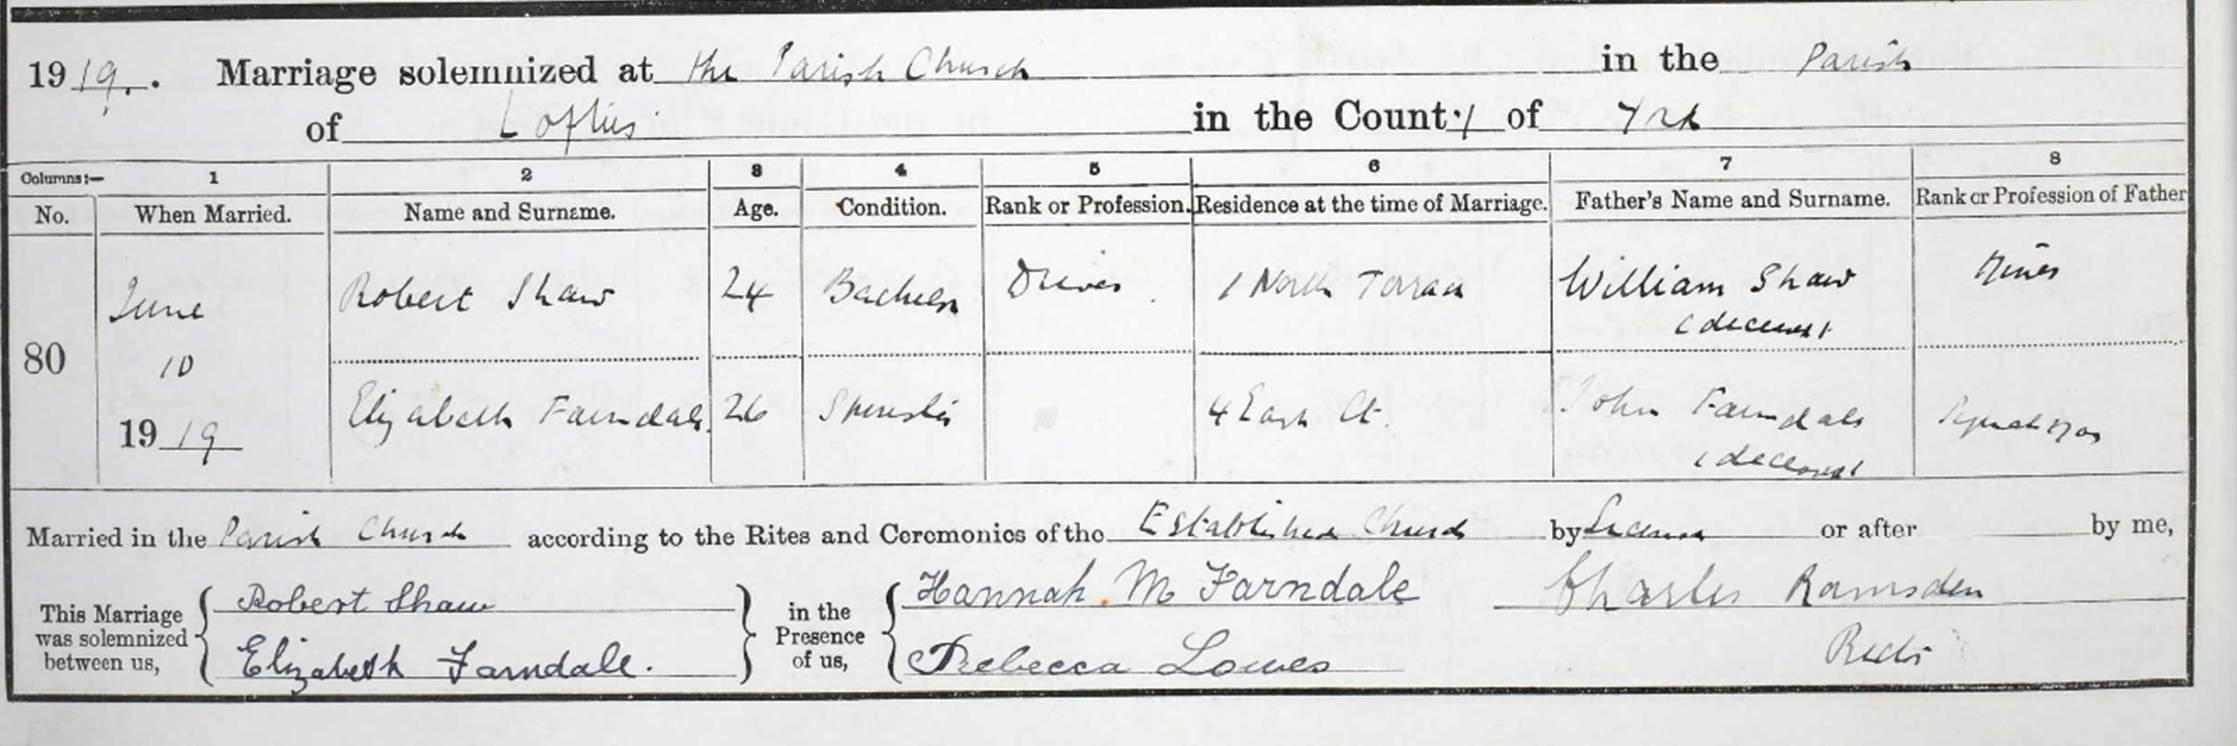 1919. Marriage solemnized at the Parish Church in the Parish
of Loftus in the County of York
Columns:— 1 2 3 4 5 6 7 8
No. When Married. Name and Surname. Age. Condition. Rank or Profession. Residence at the time of Marriage. Father's Name and Surname. Rank or Profession of Father
80 June 10 1919
Robert Shaw 24 Bachelor Driver 1 North Terrace William Shaw (deceased) Miner
Elizabeth Farndale 26 Spinster 4 East Ct. John Farndale (deceased)
Married in the Parish Church according to the Rites and Ceremonies of the Established Church by Licence or after by me,
This Marriage was solemnized between us, Robert Shaw Elizabeth Farndale. in the Presence of us, Hannah M Farndale Rebecca Lowes
Charles Ramsden
Rector